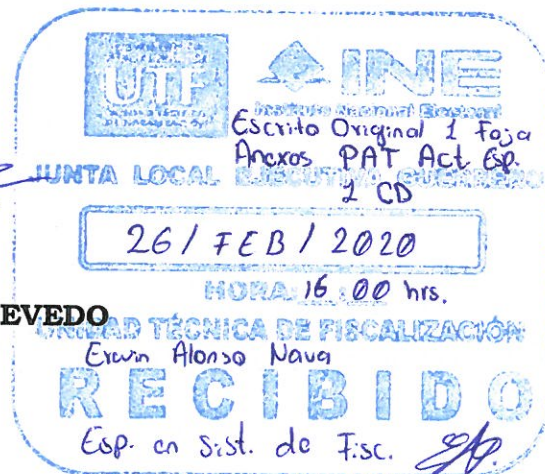 UTF
INE
Instituto Nacional Electoral
Escrito Original 1 Foja
Anexos PAT Act Esp.
JUNTA LOCAL EJECUTIVA GUERRERO
1 CD
26 / FEB / 2020
HORA: 16:00 hrs.
EVEDO
UNIDAD TÉCNICA DE FISCALIZACIÓN
Erwin Alonso Nava
RECIBIDO
Esp. en Sist. de Fisc.